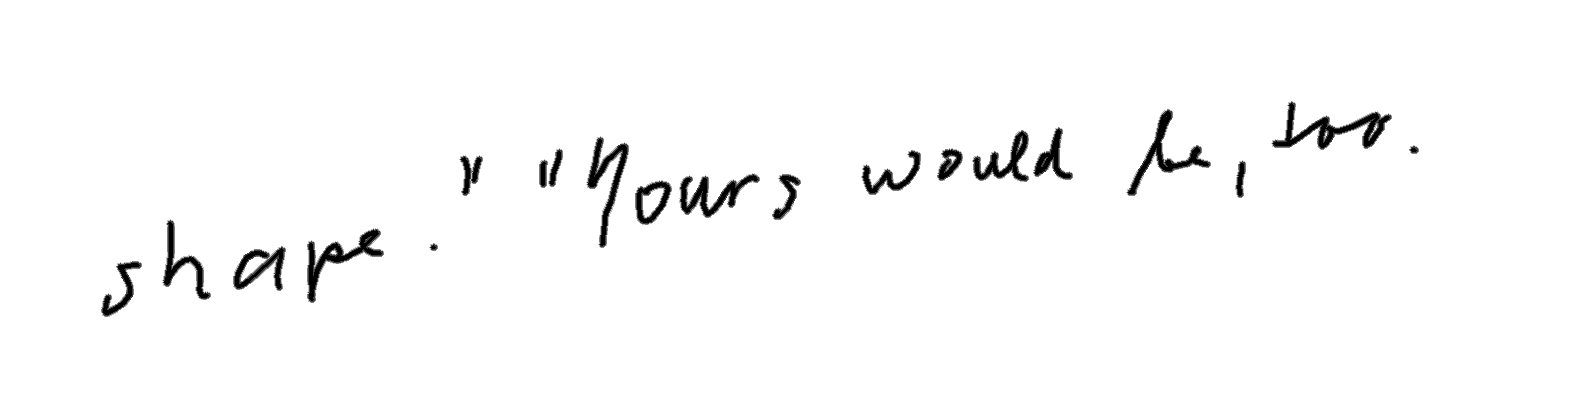 shape." "Yours would be, too.